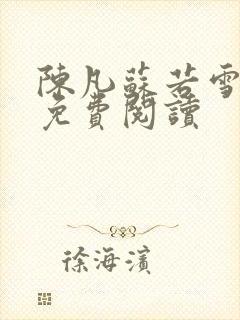 陳凡蘇若雪
免費閱讀
徐海濱